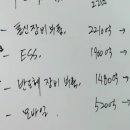 - 통신장비 비중. 2210억 →
- ESS. 1900억 →
- 반도체 장비 비중. 1480억 →
- 모바일 520억 →